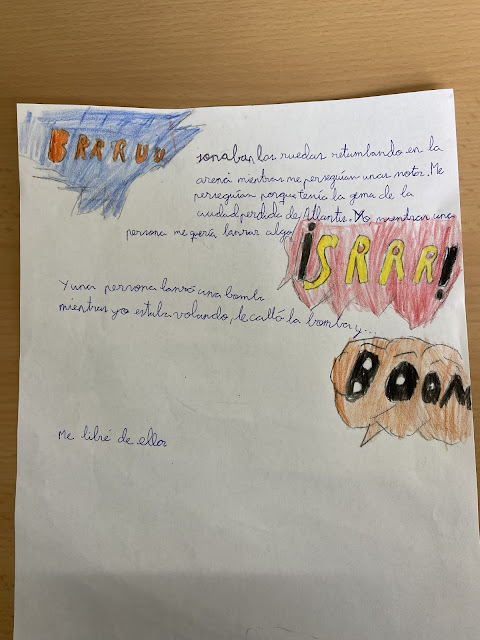 BRRRUU
sonaban las ruedas retumbando en la
arena mientras me perseguían unas motos. Me
perseguían porque tenía la gema de la
ciudad perdida de Atlantis. Yo mientras una
persona me quería lanzar algo
¡SRRR!
Y una persona lanzó una bomba
mientras yo estaba volando, le calló la bomba y...
BOOM
Me libré de ellos